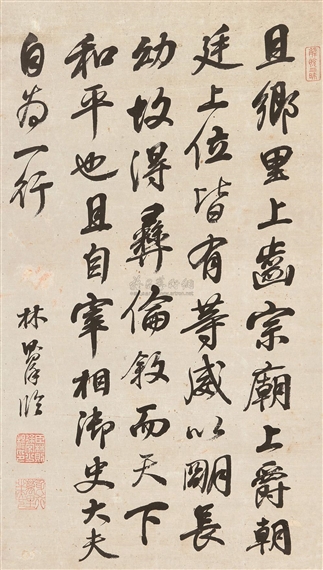 且鄉里上齒宗廟上爵朝
廷上位皆有等威以明長
幼故得彝倫敘而天下
和平也且自宰相御史大夫
自為一行
林則徐臨